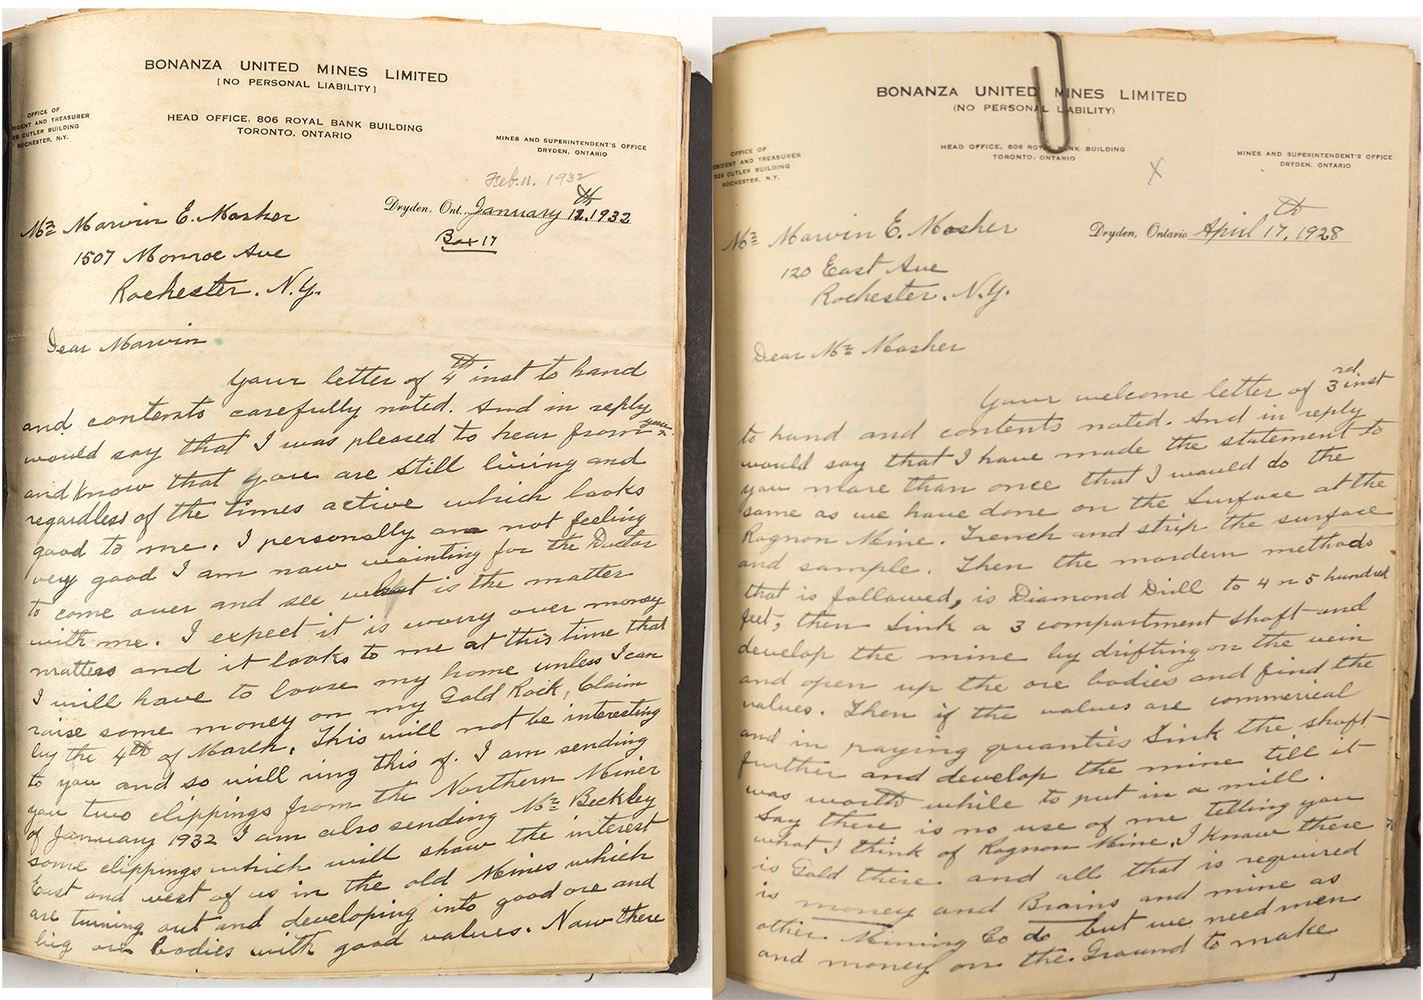 BONANZA UNITED MINES LIMITED
[NO PERSONAL LIABILITY]
OFFICE OF
IDENT AND TREASURER
CUTLER BUILDING
ROCHESTER, N.Y.
HEAD OFFICE, 806 ROYAL BANK BUILDING
TORONTO, ONTARIO
MINES AND SUPERINTENDENT'S OFFICE
DRYDEN, ONTARIO
Feb. 11. 1932
Dryden, Ont., January 12th, 1932
Box 17
Mr Marvin E. Mosher
1507 Monroe Ave
Rochester. N.Y.
Dear Marvin
Your letter of 4th inst to hand
and contents carefully noted. And in reply
would say that I was pleased to hear from you
and know that you are still living and
regardless of the times active which looks
good to me. I personally am not feeling
very good I am now waiting for the Doctor
to come over and see what is the matter
with me. I expect it is worry over money
matters and it looks to me at this time that
I will have to loose my home unless I can
raise some money on my Gold Rock, Claim
by the 4th of March. This will not be interesting
to you and so will ring this of. I am sending
you two clippings from the Northern Miner
of January 1932 I am also sending Mr Beckley
some clippings which will show the interest
East and west of us in the old Mines which
are turning out and developing into good ore and
big ore bodies with good values. Now there
BONANZA UNITED MINES LIMITED
(NO PERSONAL LIABILITY)
OFFICE OF
SIDENT AND TREASURER
CUTLER BUILDING
ROCHESTER, N.Y.
HEAD OFFICE, 806 ROYAL BANK BUILDING
TORONTO, ONTARIO
MINES AND SUPERINTENDENT'S OFFICE
DRYDEN, ONTARIO
X
Dryden, Ontario April 17th, 1928
Mr Marvin E. Mosher
120 East Ave
Rochester. N.Y.
Dear Mr Mosher
Your welcome letter of 3rd inst
to hand and contents noted. And in reply
would say that I have made the statement to
you more than once that I would do the
same as we have done on the Surface at the
Rognon Mine. Trench and strip the surface
and sample. Then the mordern methods
that is followed, is Diamond Drill to 4 or 5 hundred
feet, then Sink a 3 compartment shaft and
develop the mine by drifting on the vein
and open up the ore bodies and find the
values. Then if the values are commerical
and in paying quanties Sink the shaft
further and develop the mine till it
was worth while to put in a mill.
Say there is no use of me telling you
what I think of Rognon Mine, I know there
is Gold there and all that is required
is money and Brains and mine as
other Mining Co do but we need men
and money on the Ground to make